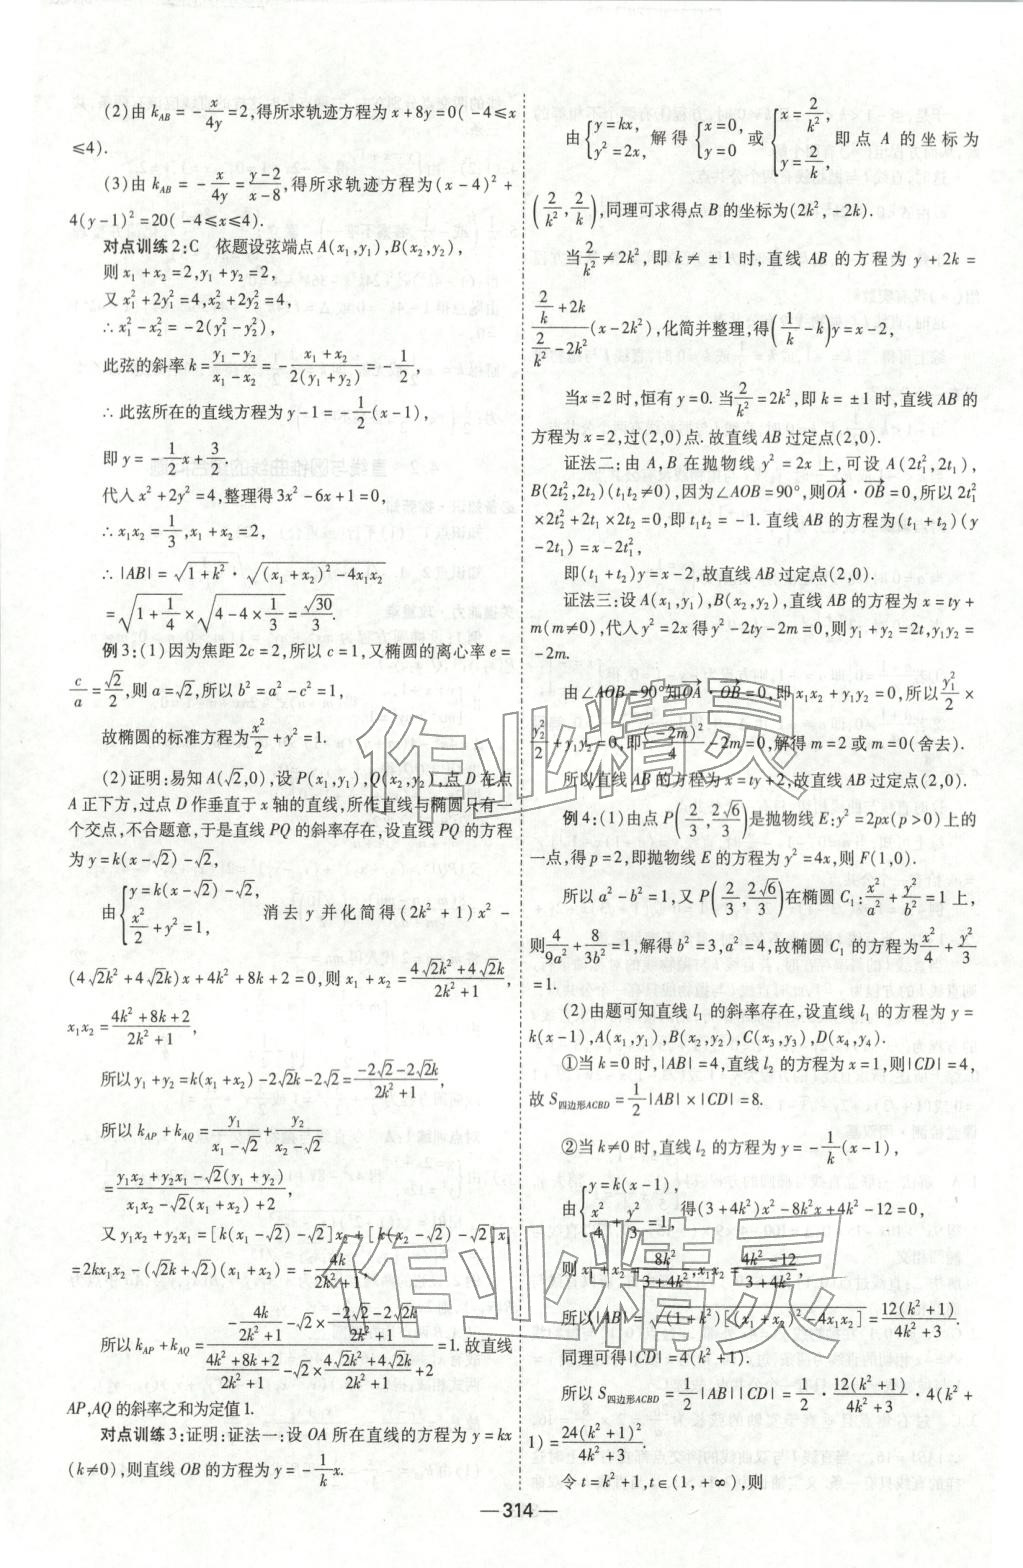 (2)由 k_AB = -x/4y = 2,得所求轨迹方程为 x+8y=0(-4≤x
≤4).
(3)由 k_AB = -x/4y = (y-2)/(x-8),得所求轨迹方程为(x-4)²+
4(y-1)²=20(-4≤x≤4).
对点训练2:C 依题设弦端点 A(x₁,y₁),B(x₂,y₂),
则 x₁+x₂=2,y₁+y₂=2,
又 x₁²+2y₁²=4,x₂²+2y₂²=4,
∴x₁²-x₂²=-2(y₁²-y₂²),
此弦的斜率 k=(y₁-y₂)/(x₁-x₂)=-(x₁+x₂)/(2(y₁+y₂))=-1/2,
∴此弦所在的直线方程为 y-1=-1/2(x-1),
即 y=-1/2x+3/2.
代入 x²+2y²=4,整理得3x²-6x+1=0,
∴x₁x₂=1/3,x₁+x₂=2.
∴|AB|=√(1+k²)·√((x₁+x₂)²-4x₁x₂)
=√(1+1/4)×√(4-4×1/3)=√30/3.
例3:(1)因为焦距2c=2,所以 c=1,又椭圆的离心率 e=
c/a=√2/2,则 a=√2,所以 b²=a²-c²=1,
故椭圆的标准方程为x²/2+y²=1.
(2)证明:易知 A(√2,0),设 P(x₁,y₁),Q(x₂,y₂),点 D 在点
A 正下方,过点 D 作垂直于 x 轴的直线,所作直线与椭圆只有一
个交点,不合题意,于是直线 PQ 的斜率存在,设直线 PQ 的方程
为 y=k(x-√2)-√2,
由{y=k(x-√2)-√2, x²/2+y²=1, 消去 y 并化简得(2k²+1)x²-
(4√2k²+4√2k)x+4k²+8k+2=0,则 x₁+x₂=(4√2k²+4√2k)/(2k²+1),
x₁x₂=(4k²+8k+2)/(2k²+1),
所以 y₁+y₂=k(x₁+x₂)-2√2k-2√2=(-2√2-2√2k)/(2k²+1),
所以 k_AP+k_AQ=y₁/(x₁-√2)+y₂/(x₂-√2)
=(y₁x₂+y₂x₁-√2(y₁+y₂))/(x₁x₂-√2(x₁+x₂)+2),
又 y₁x₂+y₂x₁=[k(x₁-√2)-√2]x₂+[k(x₂-√2)-√2]x₁
=2kx₁x₂-(√2k+√2)(x₁+x₂)=-4k/(2k²+1),
所以 k_AP+k_AQ=(-4k/(2k²+1)-√2×(-2√2-2√2k)/(2k²+1))/((4k²+8k+2)/(2k²+1)-√2×(4√2k²+4√2k)/(2k²+1)+2)=1.故直线
AP,AQ 的斜率之和为定值1.
对点训练3:证明:证法一:设 OA 所在直线的方程为 y=kx
(k≠0),则直线 OB 的方程为 y=-1/k x.
由{y=kx, y²=2x, 解得{x=0, y=0 或{x=2/k², y=2/k, 即点 A 的坐标为
(2/k²,2/k),同理可求得点 B 的坐标为(2k²,-2k).
当2/k²≠2k²,即 k≠±1时,直线 AB 的方程为 y+2k=
(2/k+2k)/(2/k²-2k²)(x-2k²),化简并整理,得(1/k-k)y=x-2,
当x=2时,恒有 y=0.当2/k²=2k²,即 k=±1时,直线 AB 的
方程为 x=2,过(2,0)点.故直线 AB 过定点(2,0).
证法二:由 A,B 在抛物线 y²=2x 上,可设 A(2t₁²,2t₁),
B(2t₂²,2t₂)(t₁t₂≠0),因为∠AOB=90°,则OA·OB=0,所以2t₁²
×2t₂²+2t₁×2t₂=0,即 t₁t₂=-1.直线 AB 的方程为(t₁+t₂)(y
-2t₁)=x-2t₁²,
即(t₁+t₂)y=x-2,故直线 AB 过定点(2,0).
证法三:设 A(x₁,y₁),B(x₂,y₂),直线 AB 的方程为 x=ty+
m(m≠0),代入 y²=2x 得 y²-2ty-2m=0,则 y₁+y₂=2t,y₁y₂=
-2m.
由∠AOB=90°知OA·OB=0,即 x₁x₂+y₁y₂=0,所以y₁²/2×
y₂²/2+y₁y₂=0,即(-2m)²/4-2m=0,解得 m=2或 m=0(舍去).
所以直线 AB 的方程为 x=ty+2,故直线 AB 过定点(2,0).
例4:(1)由点 P(2/3,2√6/3)是抛物线 E:y²=2px(p>0)上的
一点,得 p=2,即抛物线 E 的方程为 y²=4x,则 F(1,0).
所以 a²-b²=1,又 P(2/3,2√6/3)在椭圆 C₁:x²/a²+y²/b²=1上,
则4/9a²+8/3b²=1,解得 b²=3,a²=4,故椭圆 C₁ 的方程为x²/4+y²/3
=1.
(2)由题可知直线 l₁ 的斜率存在,设直线 l₁ 的方程为 y=
k(x-1),A(x₁,y₁),B(x₂,y₂),C(x₃,y₃),D(x₄,y₄).
①当 k=0时,|AB|=4,直线 l₂ 的方程为 x=1,则|CD|=4,
故 S四边形ACBD=1/2|AB|×|CD|=8.
②当 k≠0时,直线 l₂ 的方程为 y=-1/k(x-1),
由{y=k(x-1), x²/4+y²/3=1, 得(3+4k²)x²-8k²x+4k²-12=0,
则 x₁+x₂=8k²/(3+4k²),x₁x₂=(4k²-12)/(3+4k²),
所以|AB|=√((1+k²)[(x₁+x₂)²-4x₁x₂])=12(k²+1)/(4k²+3).
同理可得|CD|=4(k²+1).
所以 S四边形ACBD=1/2|AB||CD|=1/2·12(k²+1)/(4k²+3)·4(k²+
1)=24(k²+1)²/(4k²+3).
令 t=k²+1,t∈(1,+∞),则
作业精灵
作业精灵
—314—